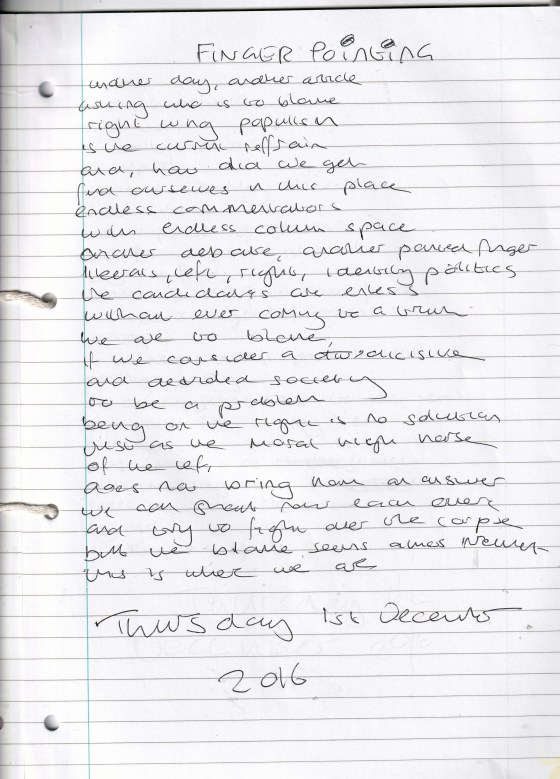 FINGER POINTING
another day, another article
asking who is to blame
right wing populism
is the current reffrain
and, how did we get
find ourselves in this place
endless commentators
with endless column space
another debate, another pointed finger
liberals, left, right, identity politics
the candidates are
without ever coming to a
we are to blame,
if we consider a
and divided society
to be a problem
being on the right is no solution
just as the moral high horse
of the left,
does not bring an answer
we can each other
and try to fight over the corpse
but the blame seems
this is where we are
Thursday 1st December
2016